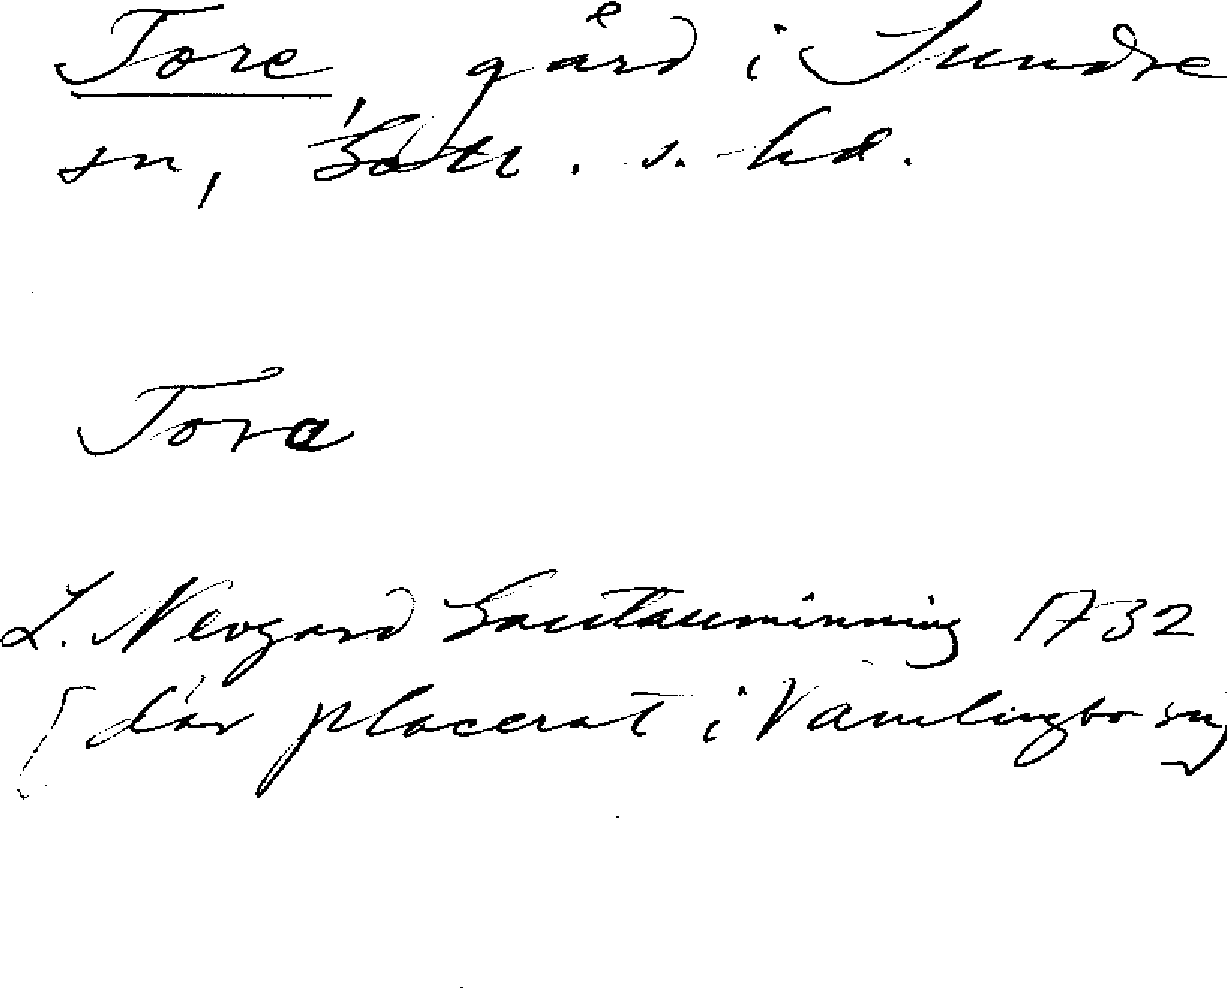 Tore, gård i Sundre
sn, Gotl. s. hd.
Tora
L. Neogard Gautauminning 1732
[där placerat i Vamlingbo sn]